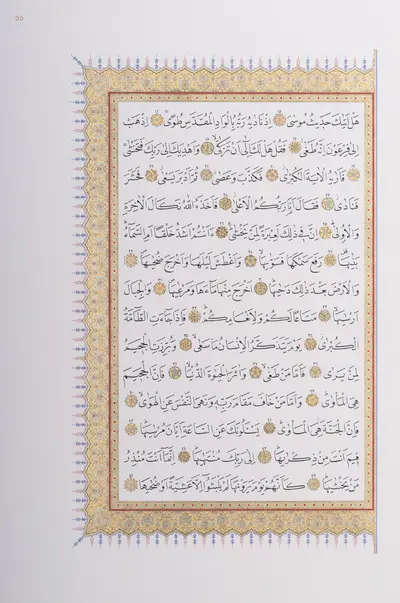 هَلْ اَتٰيكَ حَدِيثُ مُوسٰى اِذْ نَادٰيهُ رَبُّهُ بِالْوَادِ الْمُقَدَّسِ طُوًى اِذْهَبْ
اِلٰى فِرْعَوْنَ اِنَّهُ طَغٰى فَقُلْ هَلْ لَكَ اِلٰى اَنْ تَزَكّٰى وَاَهْدِيَكَ اِلٰى رَبِّكَ فَتَخْشٰى
فَاَرٰيهُ الْاٰيَةَ الْكُبْرٰى فَكَذَّبَ وَعَصٰى ثُمَّ اَدْبَرَ يَسْعٰى فَحَشَرَ
فَنَادٰى فَقَالَ اَنَا رَبُّكُمُ الْاَعْلٰى فَاَخَذَهُ اللّٰهُ نَكَالَ الْاٰخِرَةِ
وَالْاُولٰى اِنَّ فِي ذٰلِكَ لَعِبْرَةً لِمَنْ يَخْشٰى ءَاَنْتُمْ اَشَدُّ خَلْقًا اَمِ السَّمَاءُ
بَنٰيهَا رَفَعَ سَمْكَهَا فَسَوّٰيهَا وَاَغْطَشَ لَيْلَهَا وَاَخْرَجَ ضُحٰيهَا
وَالْاَرْضَ بَعْدَ ذٰلِكَ دَحٰيهَا اَخْرَجَ مِنْهَا مَاءَهَا وَمَرْعٰيهَا وَالْجِبَالَ
اَرْسٰيهَا مَتَاعًا لَكُمْ وَلِاَنْعَامِكُمْ فَاِذَا جَاءَتِ الطَّامَّةُ
الْكُبْرٰى يَوْمَ يَتَذَكَّرُ الْاِنْسَانُ مَا سَعٰى وَبُرِّزَتِ الْجَحِيمُ
لِمَنْ يَرٰى فَاَمَّا مَنْ طَغٰى وَاٰثَرَ الْحَيٰوةَ الدُّنْيَا فَاِنَّ الْجَحِيمَ
هِيَ الْمَاْوٰى وَاَمَّا مَنْ خَافَ مَقَامَ رَبِّهِ وَنَهَى النَّفْسَ عَنِ الْهَوٰى
فَاِنَّ الْجَنَّةَ هِيَ الْمَاْوٰى يَسْـَٔلُونَكَ عَنِ السَّاعَةِ اَيَّانَ مُرْسٰيهَا
فِيمَ اَنْتَ مِنْ ذِكْرٰيهَا اِلٰى رَبِّكَ مُنْتَهٰيهَا اِنَّمَا اَنْتَ مُنْذِرُ
مَنْ يَخْشٰيهَا كَاَنَّهُمْ يَوْمَ يَرَوْنَهَا لَمْ يَلْبَثُوا اِلَّا عَشِيَّةً اَوْ ضُحٰيهَا